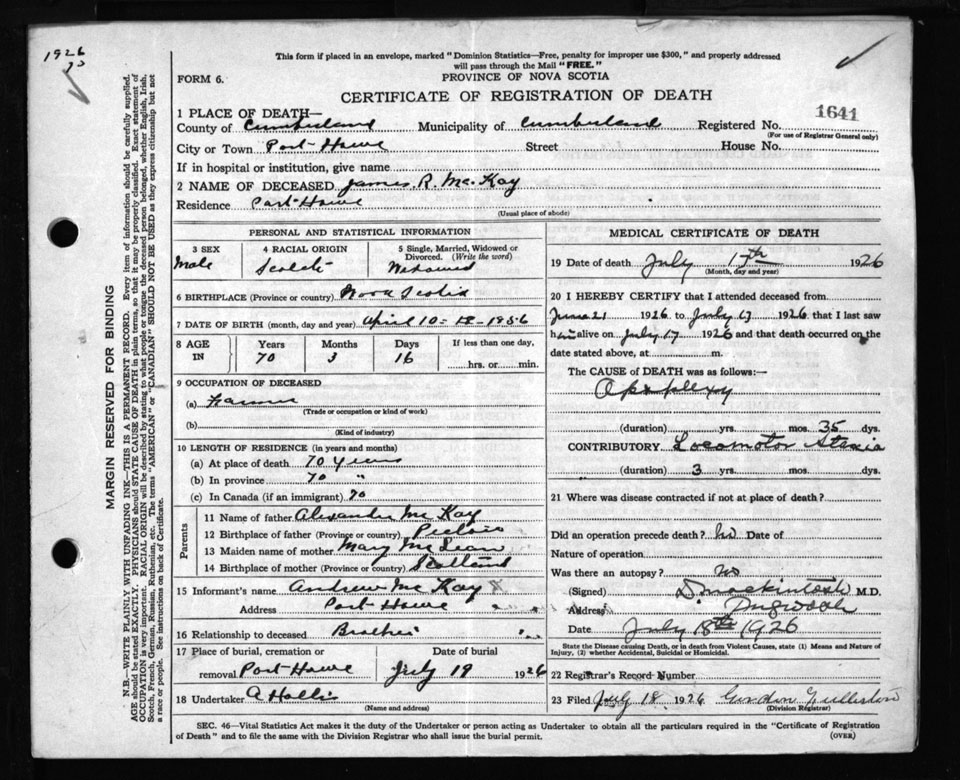 1926
This form if placed in an envelope, marked "Dominion Statistics—Free, penalty for improper use $300," and properly addressed
will pass through the Mail "FREE."
FORM 6.
PROVINCE OF NOVA SCOTIA
CERTIFICATE OF REGISTRATION OF DEATH
1641
1 PLACE OF DEATH—
County of Cumberland Municipality of Cumberland Registered No.
(For use of Registrar General only)
City or Town Port Howe Street House No.
If in hospital or institution, give name
2 NAME OF DECEASED James R. McKay
Residence Port Howe
(Usual place of abode)
PERSONAL AND STATISTICAL INFORMATION
3 SEX 4 RACIAL ORIGIN 5 Single, Married, Widowed or Divorced. (Write the word)
Male Scotch Widowed
6 BIRTHPLACE (Province or country) Nova Scotia
7 DATE OF BIRTH (month, day and year) April 10 1856
8 AGE IN Years Months Days If less than one day,
70 3 16 hrs. or min.
9 OCCUPATION OF DECEASED
(a) Farmer
(Trade or occupation or kind of work)
(b)
(Kind of industry)
10 LENGTH OF RESIDENCE (in years and months)
(a) At place of death 70 years
(b) In province 70 "
(c) In Canada (if an immigrant) 70
Parents
11 Name of father Alexander McKay
12 Birthplace of father (Province or country) Pictou
13 Maiden name of mother Mary McLean
14 Birthplace of mother (Province or country) Scotland
15 Informant's name Andrew McKay
Address Port Howe
16 Relationship to deceased Brother
17 Place of burial, cremation or removal Date of burial
Port Howe July 19 1926
18 Undertaker A Hollis
(Name and address)
MEDICAL CERTIFICATE OF DEATH
19 Date of death July 17th 1926
(Month, day and year)
20 I HEREBY CERTIFY that I attended deceased from
June 21 1926 to July 17 1926 that I last saw
him alive on July 17 1926 and that death occurred on the
date stated above, at m.
The CAUSE of DEATH was as follows:—
Apoplexy
(duration) yrs. mos. 35 dys.
CONTRIBUTORY Locomotor Ataxia
(duration) 3 yrs. mos. dys.
21 Where was disease contracted if not at place of death?
Did an operation precede death? No Date of
Nature of operation
Was there an autopsy? No
(Signed) D. Mackintosh M.D.
Address Pugwash
Date July 18th 1926
State the Disease causing Death, or in death from Violent Causes, state (1) Means and Nature of
Injury, (2) whether Accidental, Suicidal or Homicidal.
22 Registrar's Record Number
23 Filed July 18 1926 Gordon
(Division Registrar)
SEC. 46—Vital Statistics Act makes it the duty of the Undertaker or person acting as Undertaker to obtain all the particulars required in the "Certificate of Registration
of Death" and to file the same with the Division Registrar who shall issue the burial permit.
(OVER)
MARGIN RESERVED FOR BINDING
N.B.—WRITE PLAINLY WITH UNFADING INK—THIS IS A PERMANENT RECORD. Every item of information should be carefully supplied.
AGE should be stated EXACTLY. PHYSICIANS should STATE CAUSE OF DEATH in plain terms, so that it may be properly classified. Exact statement of
OCCUPATION is very important. RACIAL ORIGIN will be described by stating to what people or tongue the deceased person belonged, whether English, Irish,
Scotch, French, German, Russian, Ruthenian, etc. The terms "AMERICAN" or "CANADIAN" SHOULD NOT BE USED as they express citizenship but not
a race or people. See instructions on back of Certificate.